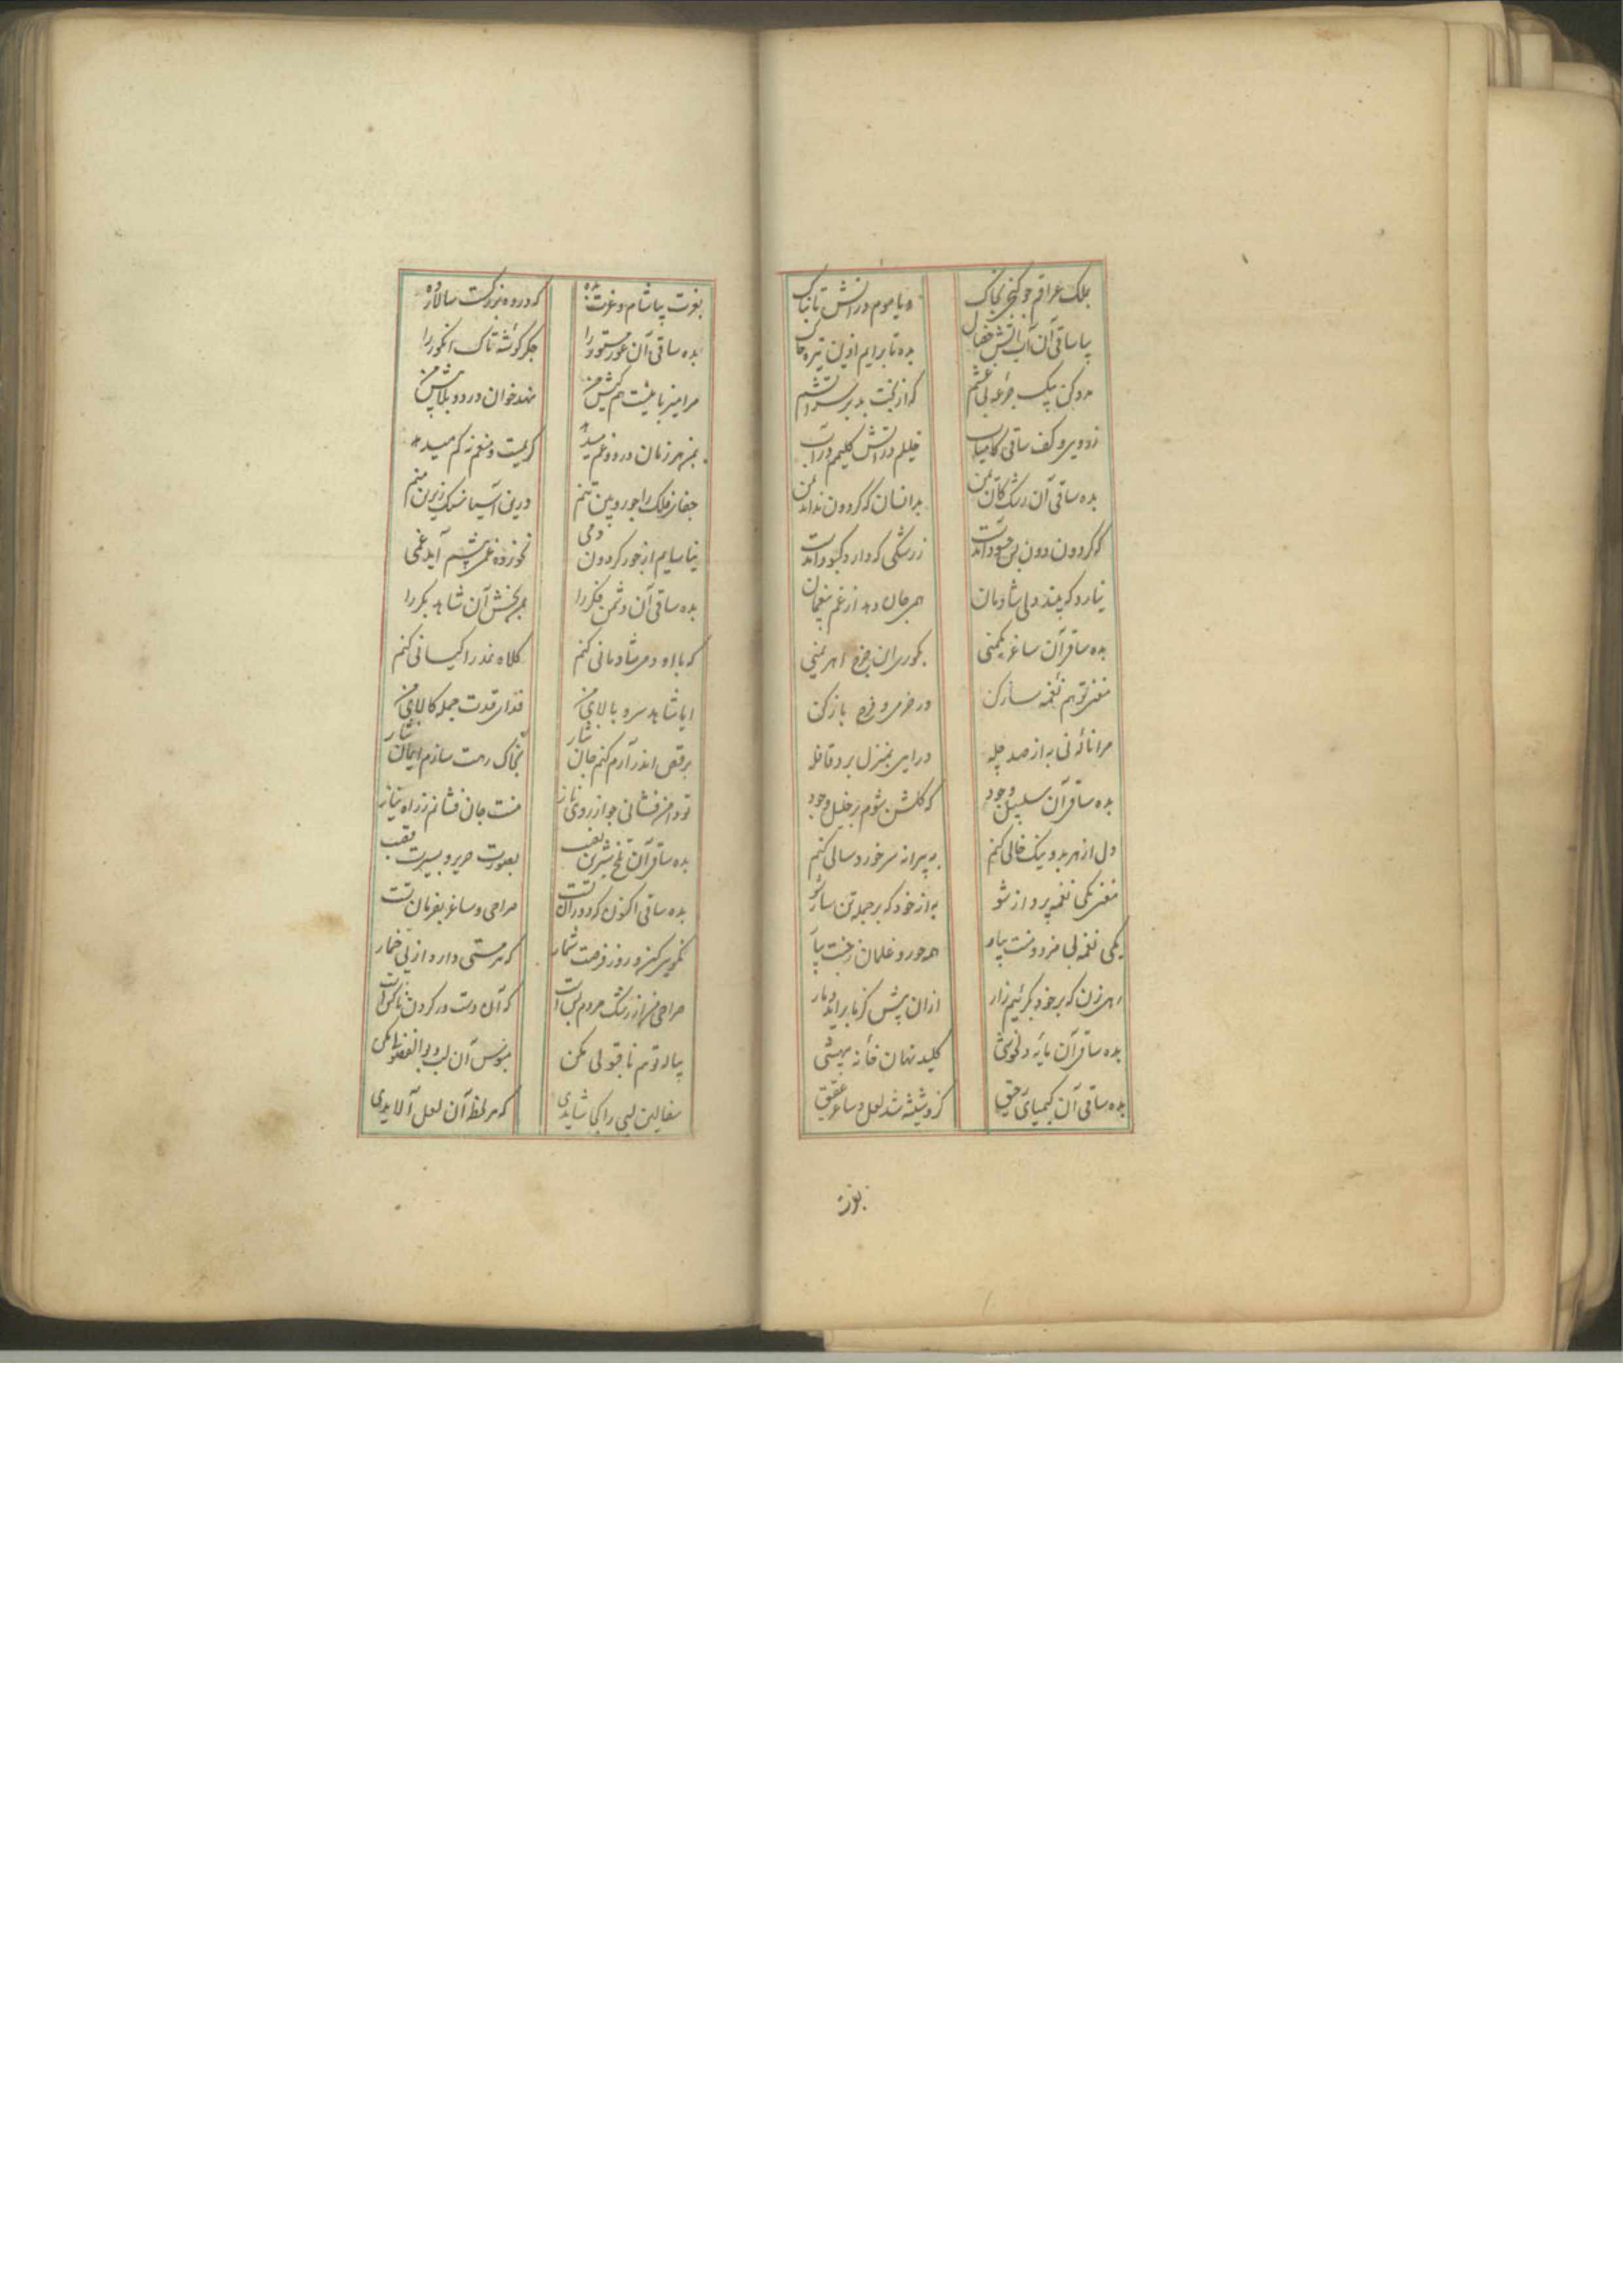 بملک عراقم چو گنجی بخاک
و یا موم در آتش تابناک
بیا ساقی آن آب آتش خصال
بده تا برایم ازین تیره
مدد کن بیک جرعه بی غشم
که از بخت بد بر سر آتشم
زدوری و کف ساقی کامیاب
خلیلم در آتش کلیمم در آب
بده ساقی آن رشک کان یمن
بدانسان که گردون نداند من
که گردون دون بس حسود آمدست
زرشکی که دارد کبود آمدست
نیارد که بیند دلی شادمان
همی جان دهد از غم
بده ساقی آن ساغر یکمنی
بکوری این چرخ اهریمنی
مغنی تو هم نغمه ساز کن
در خرمی و فرح باز کن
مرا نالهٔ نی به از صد چله
درای بمنزل برد قافله
بده ساقی آن سلسبیل وجود
که گلشن شوم بر خلیل وجود
دل از هر بد و نیک خالی کنم
به پیرانه سر خورد سالی کنم
مغنی یکی نغمه پرداز شو
به از خود که بر جمله تن ساز شو
یکی نغمه لب مزد دستت بیاه
همه حور و غلمان زجنت بیا
رهی زن که بر خود بگرئیم زار
ازان پیش کز ما برآید دمار
بده ساقی آن مایه دلخوشی
کلید نهان خانه بیهشی
بده ساقی آن کیمیای رحیق
کزو شیشه شد لعل و ساغر عقیق
بغرت
بغرت بیاشام و غرت بده
که درده بزرگست سالار ده
بده ساقی آن عور مستور را
جگر گوشه تاک انگور را
مرا میزبانیست هم کیش من
نهد خوان درد و بلا پیش من
بمن هر زمان درد و غم میدهد
کریمست و منعم نه کم میدهد
جفای فلک را جوردین تنم
درین آسیا سنگ زیرین منم
نیاسایم از جور گردون دمی
نخورده غمی پیشم آید غمی
بده ساقی آن دشمن فکر را
بمن بخش آن شاهد بکر را
که با او دمی شادمانی کنم
کلاه نمد را کیانی کنم
ایا شاهد سرو بالای من
فدای قدت جمله کالای من
برقص اندر آ رم کنم جان نثار
بخاک رهت سازم ایمان نثار
تو دامن فشانی چو از روی ناز
منت جان فشانم زراه نیاز
بده ساقی آن تلخ شیرین لقب
بصورت حریر و بسیرت قصب
بده ساقی اکنون که دوران تست
صراحی و ساغر بفرمان تست
نگویی کنی و روز فرصت شمار
که هر مستی دارد از پی خمار
صراحی می از رشک مردم بس است
که آن دست در گردن ناکس است
پیاله تو هم ناقبولی مکن
مبوس آن لب و بوالفضولی مکن
سفالین لبی را کجا شایدی
که هر لحظه آن لعل آلایدی